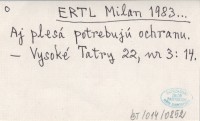 o
ERTL Milan 1983...
Aj plesá potrebujú ochranu.
– Vysoké Tatry 22, nr 3: 14.